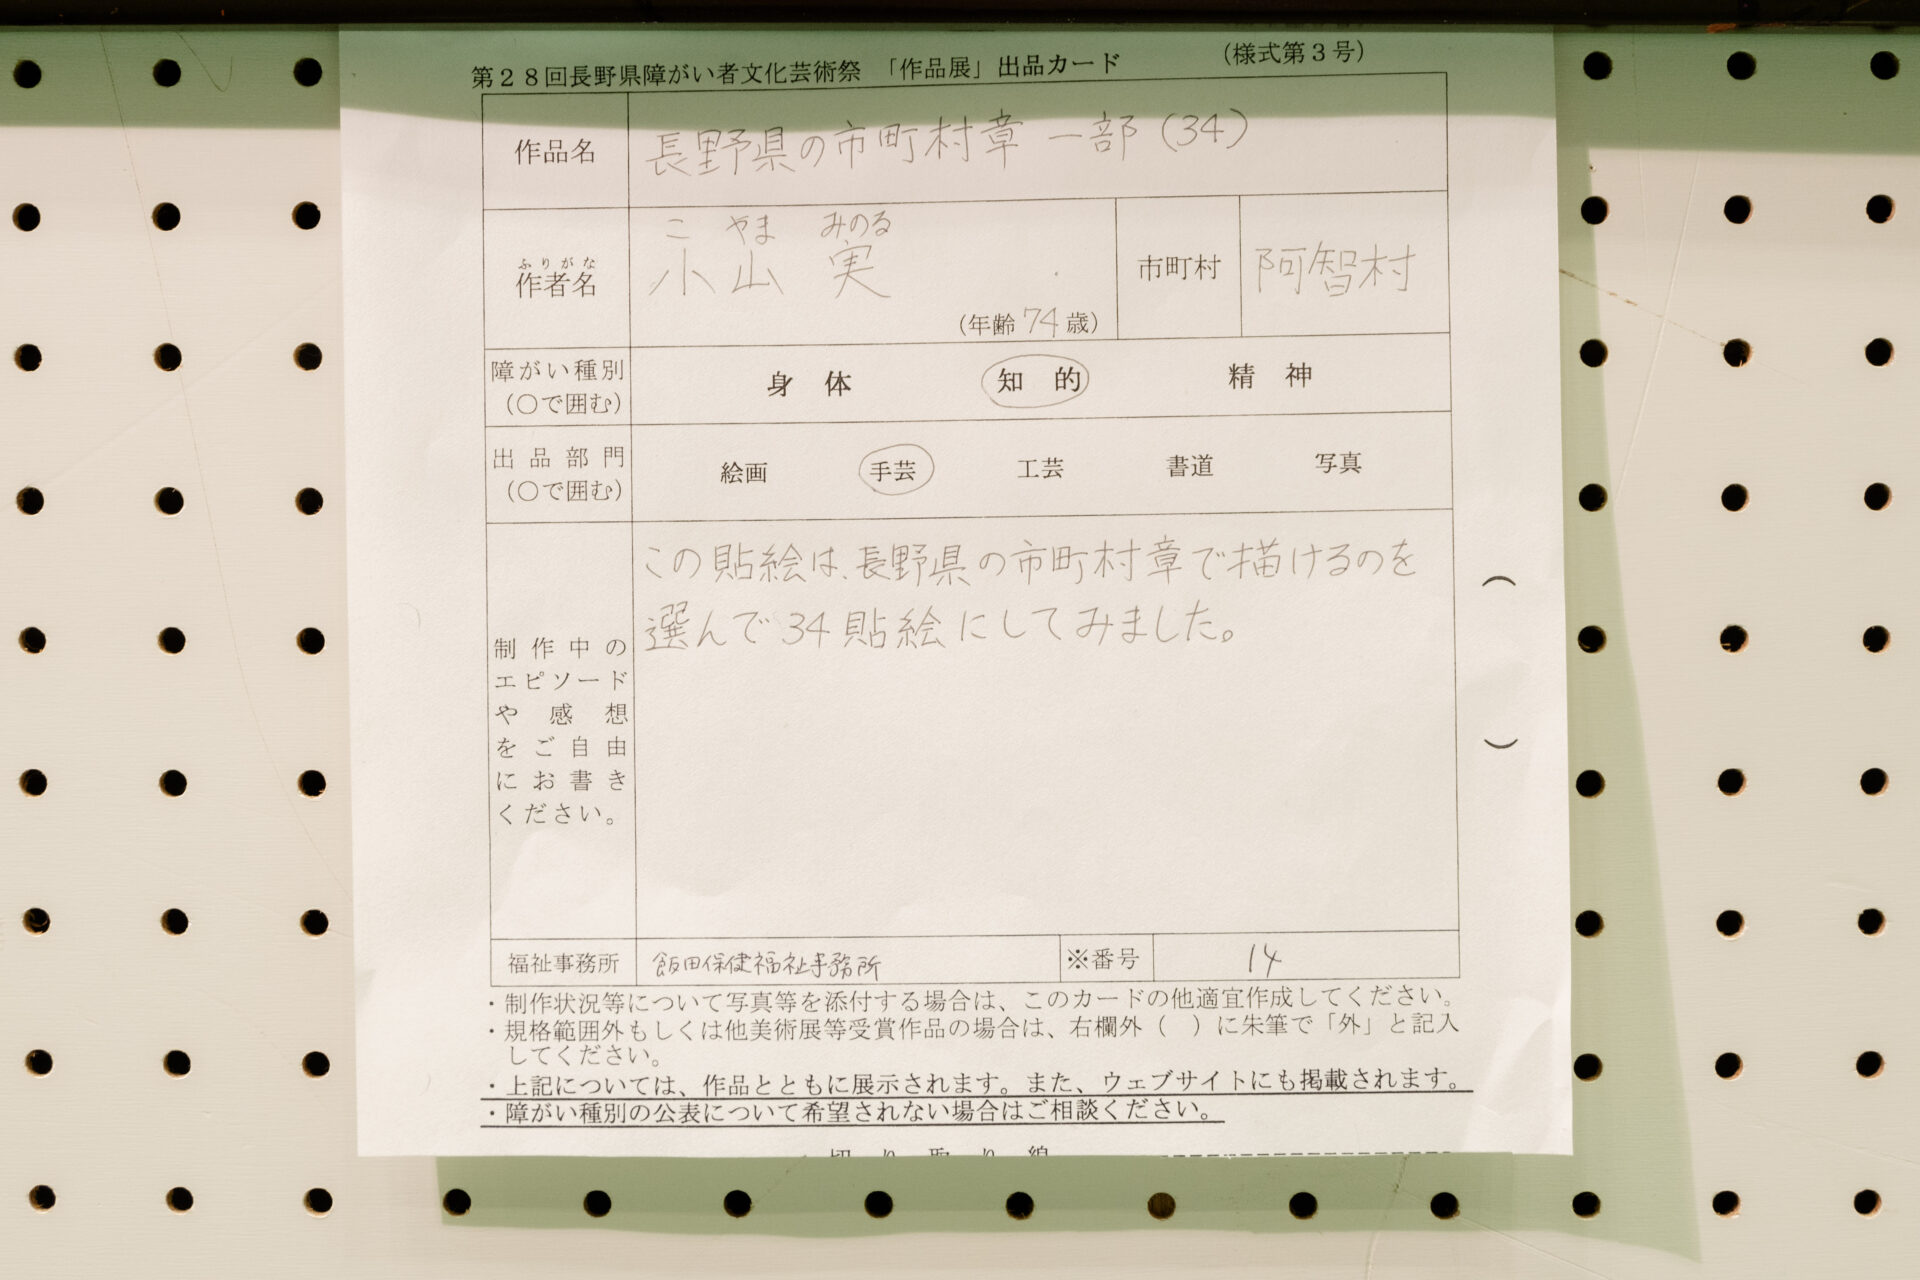 第28回長野県障がい者文化芸術祭 「作品展」出品カード (様式第3号)
作品名 長野県の市町村章 一部(34)
こ やま みのる
ふりがな
作者名 小山 実 市町村 阿智村
(年齢74歳)
障がい種別 身体 知的 精神
(○で囲む)
出品部門 絵画 手芸 工芸 書道 写真
(○で囲む)
この貼絵は、長野県の市町村章で描けるのを
選んで34貼絵にしてみました。
制作中の
エピソード
や感想
をご自由
にお書き
ください。
( )
福祉事務所 飯田保健福祉事務所 ※番号 14
・制作状況等について写真等を添付する場合は、このカードの他適宜作成してください。
・規格範囲外もしくは他美術展等受賞作品の場合は、右欄外( )に朱筆で「外」と記入
してください。
・上記については、作品とともに展示されます。また、ウェブサイトにも掲載されます。
・障がい種別の公表について希望されない場合はご相談ください。
切り取り線